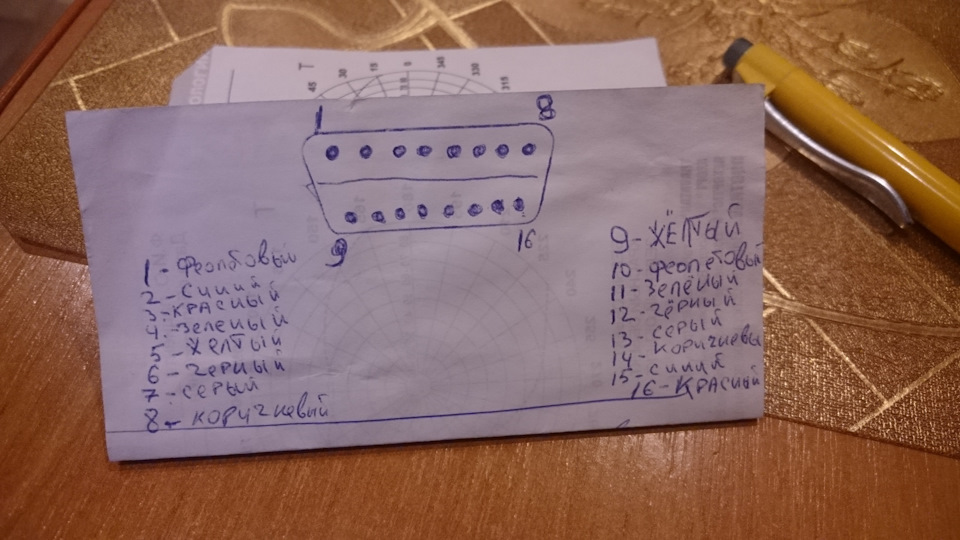 T
45 30 15 0 345 330 315
1 8
9 16
1 - Феолетовый
2 - Синий
3 - КРАСНЫЙ
4 - Зеленый
5 - Желтый
6 - Черный
7 - Серый
8 - коричневый
9 - ЖЁЛТЫЙ
10 - феолетовый
11 - Зелёный
12 - Чёрный
13 - серый
14 - коричневы
15 - синий
16 - Красный